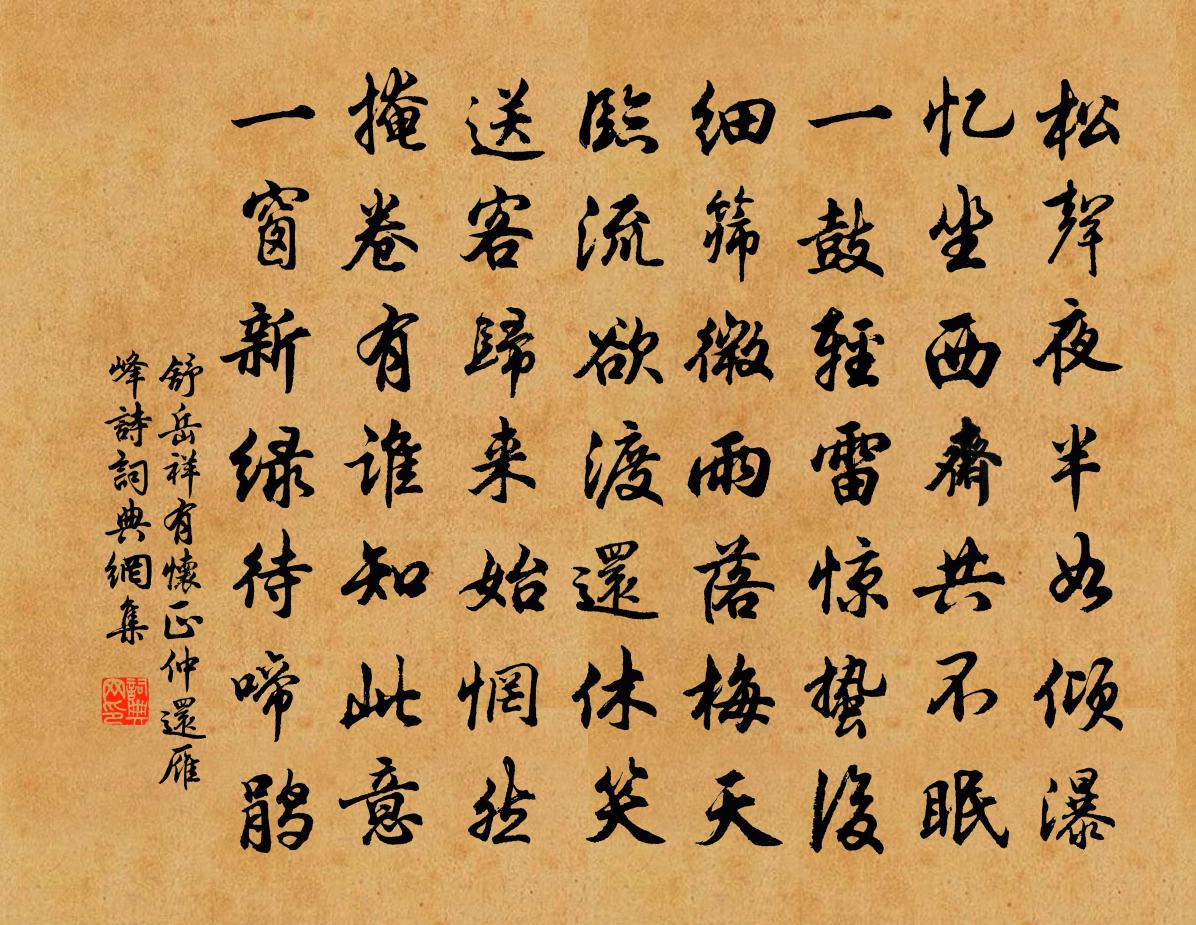 松聲夜半如倾瀑
忆坐西齋共不眠
一鼓輕雷惊蛰後
细筛微雨落梅天
臨流欲渡還休笑
送客歸来始惘然
掩卷有谁知此意
一窗新绿待啼鹃
舒岳祥有懷正仲還雁
峰詩詞典網集
詞典網印